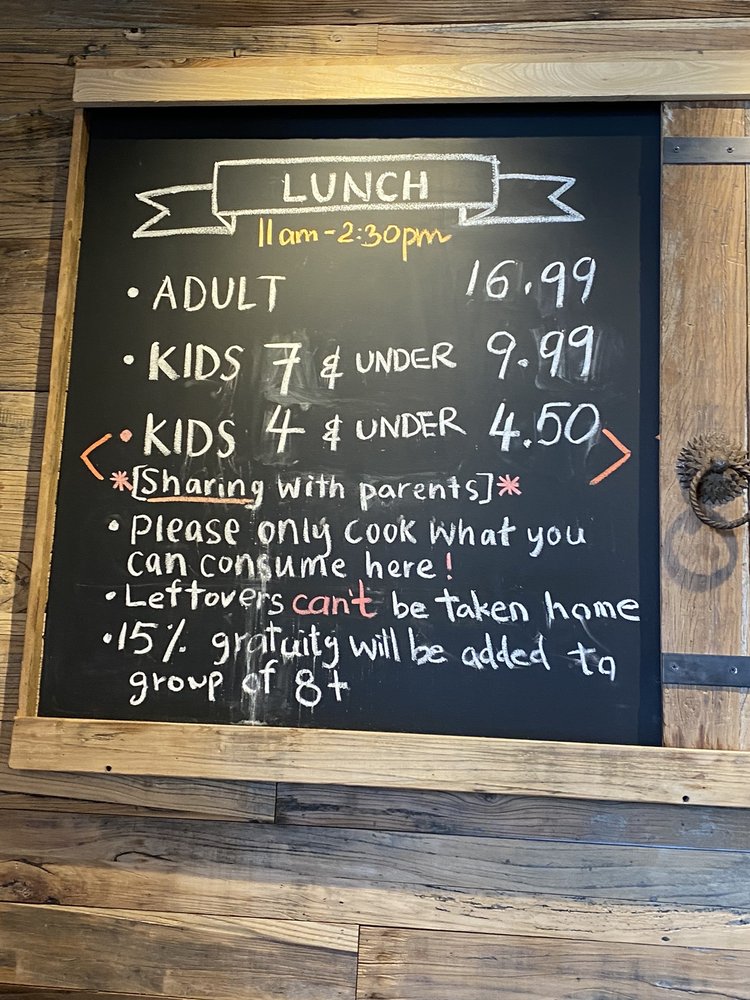 LUNCH
11am-2:30pm
• ADULT 16.99
• KIDS 7 & UNDER 9.99
• KIDS 4 & UNDER 4.50
*[Sharing with parents]*
• Please only cook what you
can consume here!
• Leftovers can't be taken home
• 15% gratuity will be added to
group of 8+